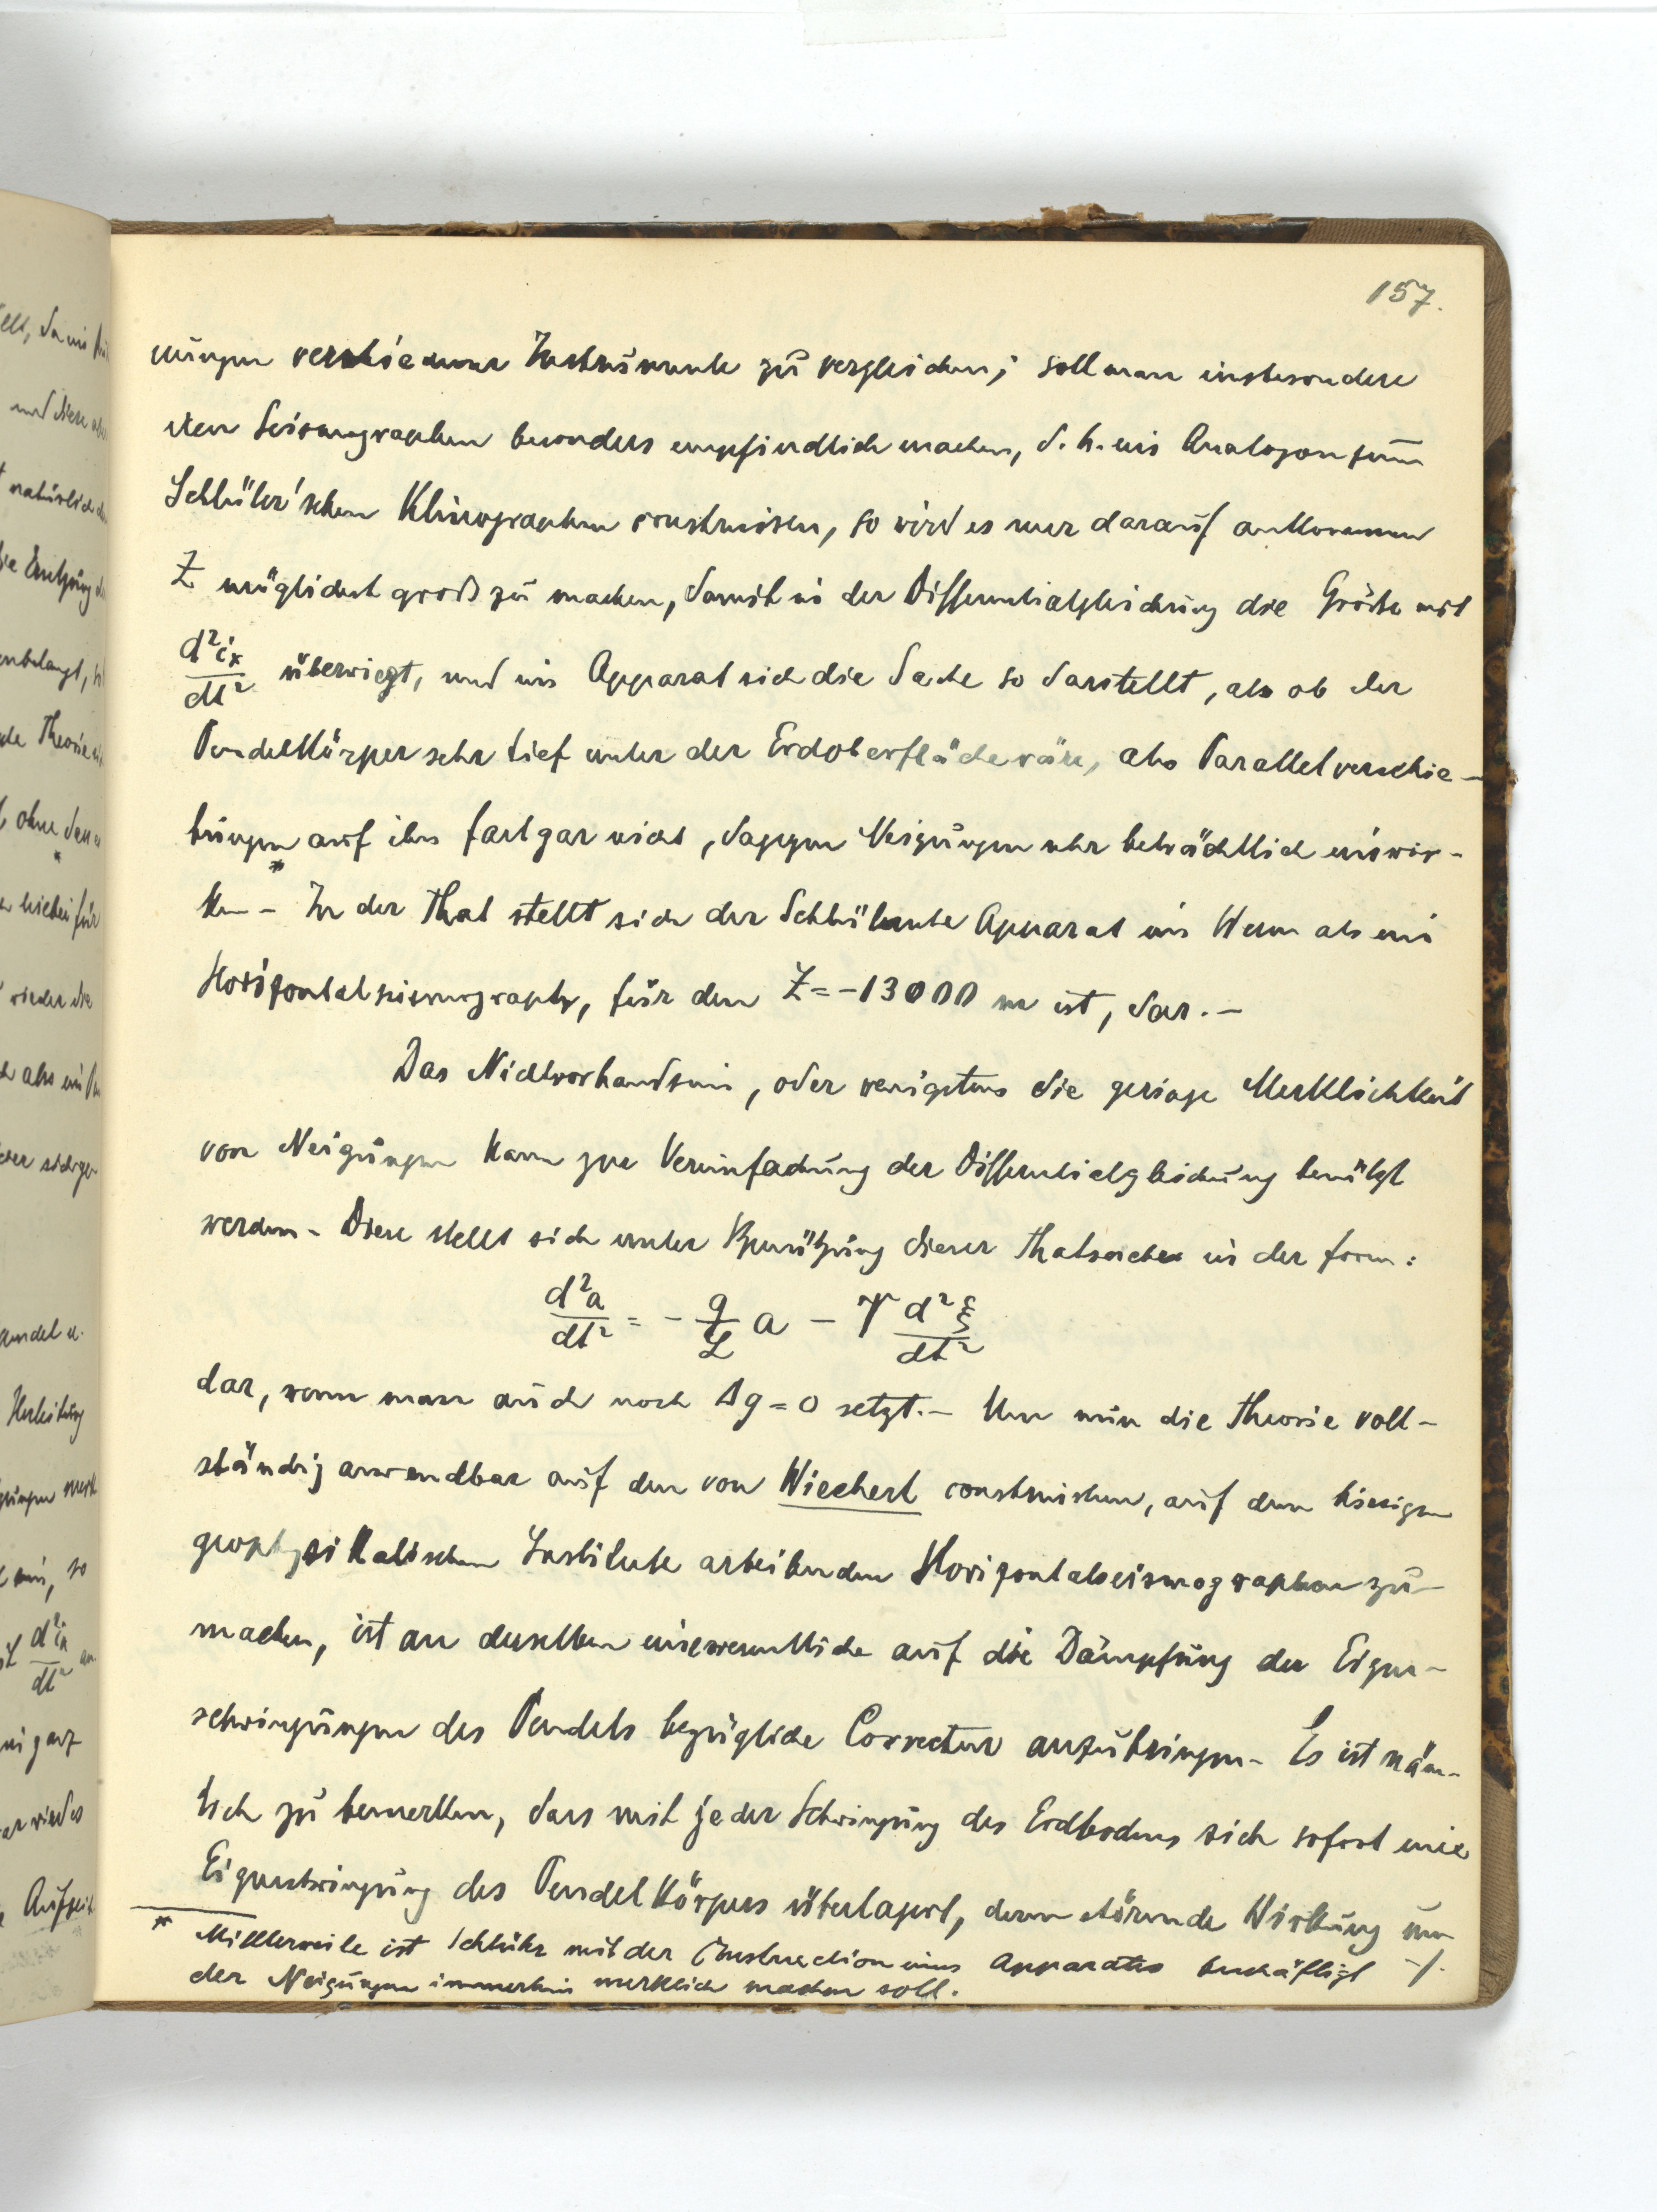 157.
nungen verschiedener Instrumente zu vergleichen; soll man insbesondere
den Seismographen besonders empfindlich machen, d. h. ein Analogon zum
Schlüter'schen Klinographen construiren, so wird es nur darauf ankommen
Z möglichst groß zu machen, damit in der Differentialgleichung die Größe mit
d²iₓ/dt² überwiegt, und im Apparat sich die Sache so darstellt, als ob der
Pendelkörper sehr tief unter der Erdoberfläche wäre, also Parallelverschie-
bungen auf ihn fast gar nicht, dagegen Neigungen sehr beträchtlich einwir-
ken * - In der That stellt sich der Schlütersche Apparat im Wesen als ein
Horizontalseismograph, für den Z = -13000 m ist, dar. -
Das Nichtvorhandsein, oder wenigstens die geringe Merklichkeit
von Neigungen kann zur Vereinfachung der Differentialgleichung benützt
werden - Diese stellt sich unter Benützung dieser Thatsache in der Form:
d²a/dt² = - g/L a - V d²ξ/dt²
dar, wenn man auch noch Δg = 0 setzt. - Um nun die Theorie voll-
ständig anwendbar auf den von Wiechert construirten, auf dem hiesigen
geophysikalischen Institute arbeitenden Horizontalseismographen zu
machen, ist an derselben eine wesentliche auf die Dämpfung der Eigen-
schwingungen des Pendels bezügliche Correctur anzubringen - Es ist näm-
lich zu bemerken, dass mit jeder Schwingung des Erdbodens sich sofort eine
Eigenschwingung des Pendelkörpers überlagert, deren störende Wirkung um
* Mittlerweile ist Schlüter mit der Construction eines Apparates beschäftigt -/.
der Neigungen immerhin merklich machen soll.